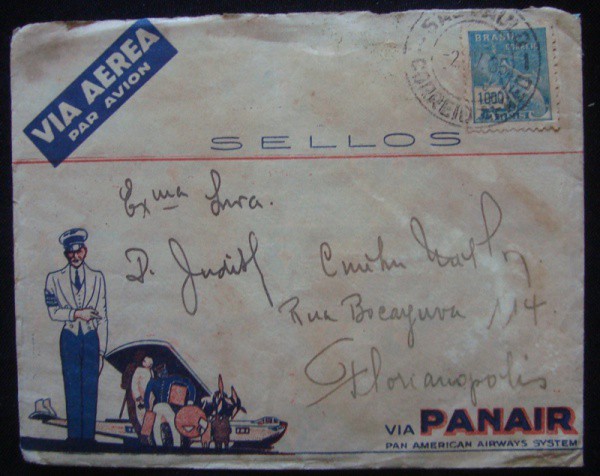 VIA AEREA
PAR AVION
BRASIL
CORREIO
1000
SELLOS
Exma Snra.
D. Judith
Rua Bocayuva 114
Florianopolis
VIA PANAIR
PAN AMERICAN AIRWAYS SYSTEM